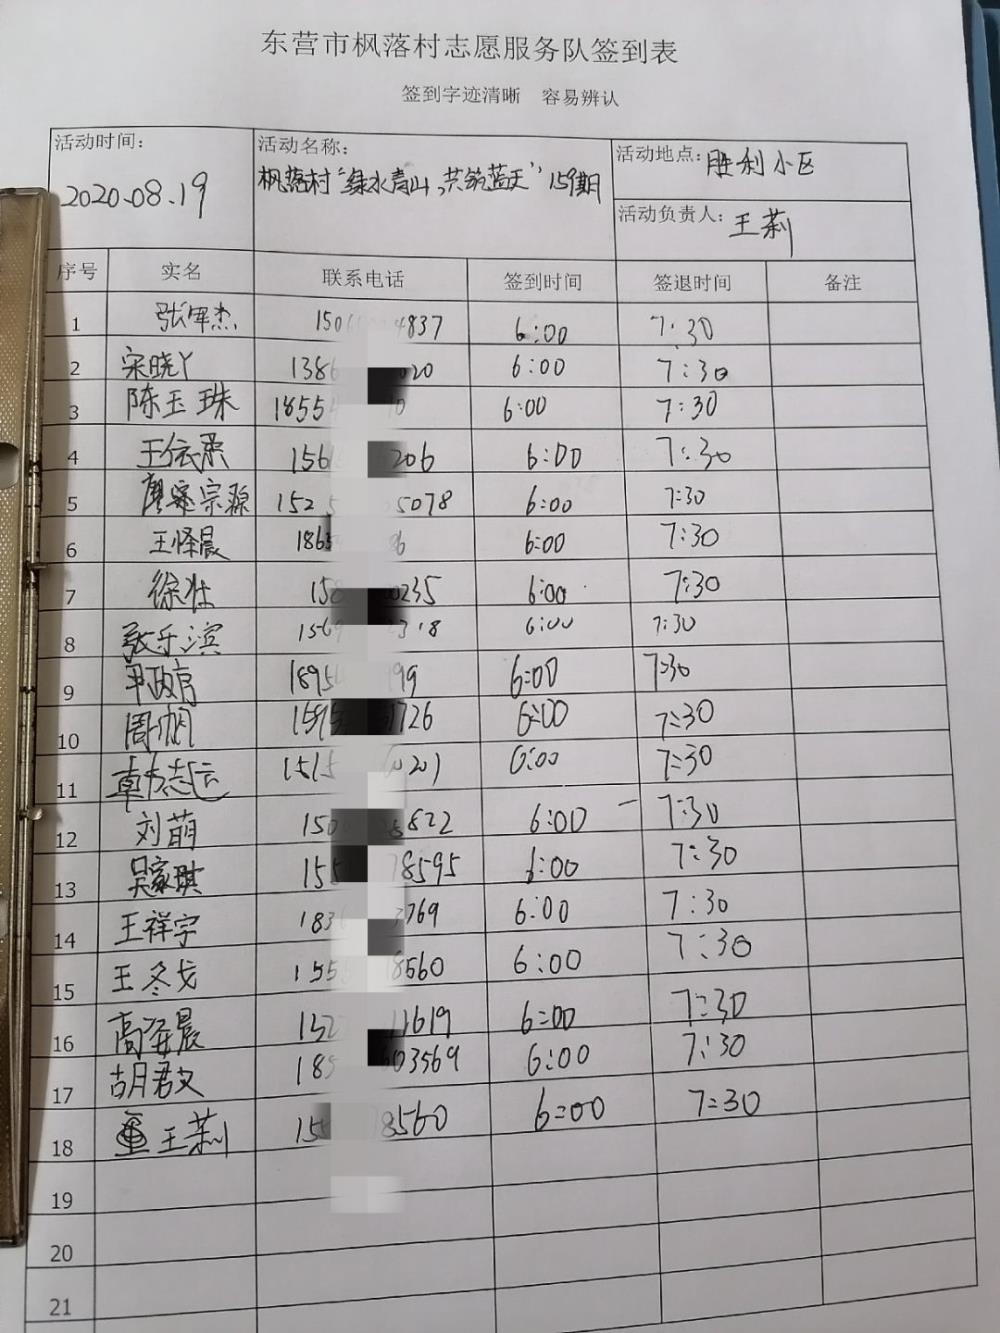 东营市枫落村志愿服务队签到表
签到字迹清晰 容易辨认
活动时间: 2020.08.19
活动名称: 枫落村“绿水青山,共筑蓝天”159期
活动地点: 胜利小区
活动负责人: 王莉
序号 实名 联系电话 签到时间 签退时间 备注
1 张军杰 150 4837 6:00 7:30
2 宋晓丫 1386 020 6:00 7:30
3 陈玉珠 1855 0 6:00 7:30
4 王依柔 156 206 6:00 7:30
5 宗源 152 5 5078 6:00 7:30
6 王怿晨 1865 6 6:00 7:30
7 徐壮 158 0235 6:00 7:30
8 张乐滨 1569 318 6:00 7:30
9 1895 199 6:00 7:30
10 周帆 1595 1726 6:00 7:30
11 志远 1515 0201 6:00 7:30
12 刘萌 150 8822 6:00 7:30
13 吴家琪 155 78595 6:00 7:30
14 王祥宇 183 3769 6:00 7:30
15 王冬戈 155 18560 6:00 7:30
16 高 晨 152 11619 6:00 7:30
17 胡君文 185 603569 6:00 7:30
18 王莉 155 78560 6:00 7:30
19
20
21